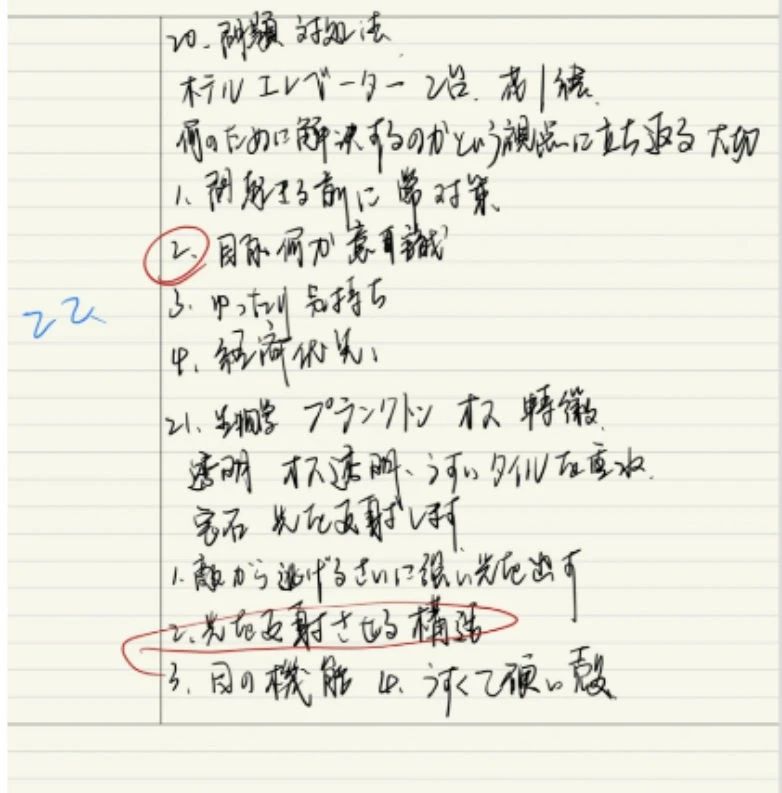 20. 問題 対処法
ホテル エレベーター 2台. 1
何のために解決するのかという視点に立ち返る 大切
1. 問題 前に 対策
2. 目的 何か 意識
3. ゆったり 気持ち
4. 経済優先
21. 生物学 プランクトン オス 特徴
透明 オス透明、うすいタイルを重
宝石 光を反射します
1. 敵から逃げるさいに強い光を出す
22
2. 光を反射させる構造
3. 目の機能 4. うすくて硬い殻